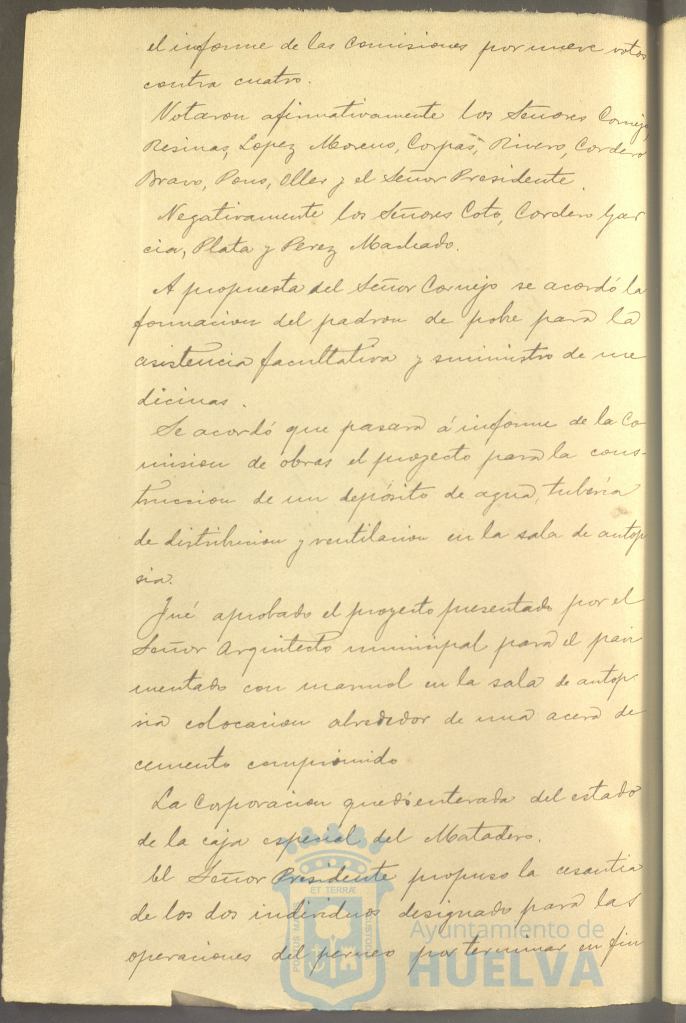 el informe de las Comisiones por nueve votos
contra cuatro.
Votaron afirmativamente los Señores Cornejo,
Resinas, Lopez Moreno, Corpas, Rivero, Cordero
Bravo, Pons, Oller y el Señor Presidente
Negativamente los Señores Coto, Cordero Gar
cia, Plata y Perez Machado.
A propuesta del Señor Cornejo se acordó la
formacion del padron de pobre para la
asistencia facultativa y suministro de me
dicinas.
Se acordó que pasara á informe de la Co
mision de obras el proyecto para la cons-
truccion de un depósito de agua, tuberia
de distribucion y ventilacion en la sala de autop
sia.
Fué aprobado el proyecto presentado por el
Señor Arquitecto municipal para el pavi
mentado con marmol en la sala de autop-
sia colocacion alrededor de una acera de
cemento comprimido
La Corporacion quedó enterada del estado
de la caja especial del Matadero.
El Señor Presidente propuso la cesantia
de los dos individuos designado para las
operaciones del perneo por terminar en fin
PORTUS MARIS ET TERRÆ CUSTODIA
Ayuntamiento de
HUELVA